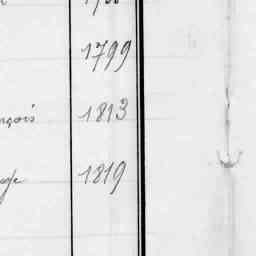 1799
nçois 1813
1819